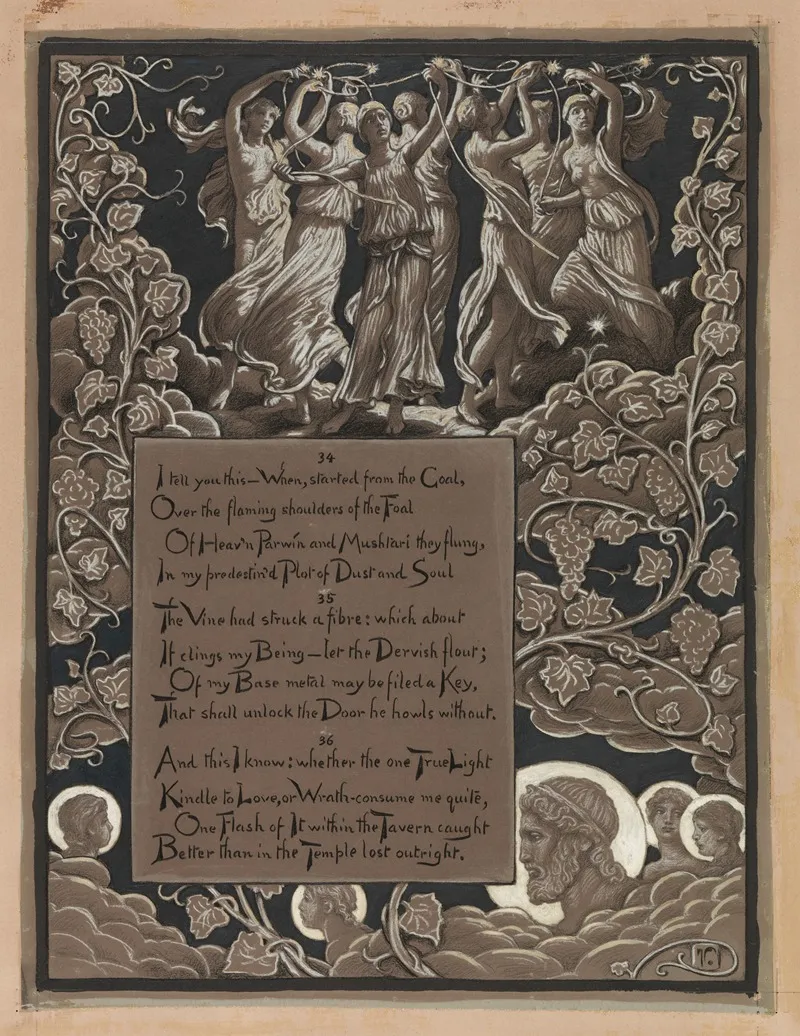 34
I tell you this—When, started from the Goal,
Over the flaming shoulders of the Foal
Of Heav'n Parwín and Mushtari they flung,
In my predestin'd Plot of Dust and Soul
35
The Vine had struck a fibre: which about
If clings my Being—let the Dervish flout;
Of my Base metal may be filed a Key,
That shall unlock the Door he howls without.
36
And this I know: whether the one True Light
Kindle to Love, or Wrath-consume me quite,
One Flash of It within the Tavern caught
Better than in the Temple lost outright.